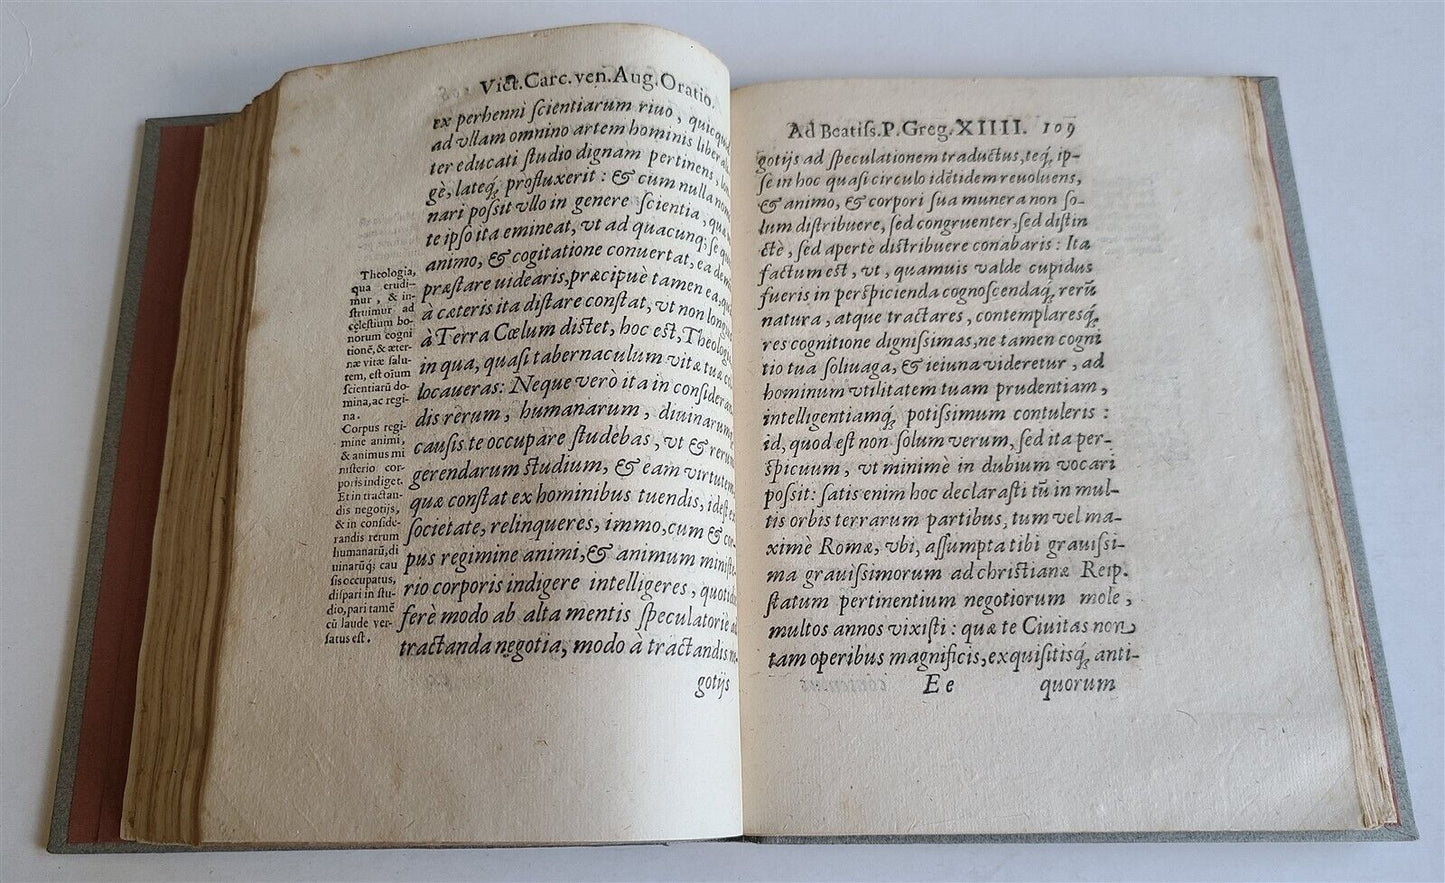 Vict. Carc. ven. Aug. Oratio.
ex perhenni ſcientiarum riuo, quicquid
ad vllam omnino artem hominis liberali-
ter educati ſtudio dignam pertinens, lon
gè, lateq́; profluxerit: & cum nulla nomi
nari poſsit vllo in genere ſcientia, quæ
te ipſo ita emineat, vt ad quacunq; ſe
animo, & cogitatione conuertat, ea demū
præſtare uidearis, præcipuè tamen ea, quā
à cæteris ita diſtare conſtat, vt non longius
à Terra Cœlum diſtet, hoc eſt, Theologia,
in qua, quaſi tabernaculum vitæ tuæ col
locaueras: Neque verò ita in conſideran
dis rerum, humanarum, diuinarumq́;
cauſis te occupare ſtudebas, vt & rerum
gerendarum ſtudium, & eam virtutem,
quæ conſtat ex hominibus tuendis, ideſt ex
ſocietate, relinqueres, immo, cum & cor-
pus regimine animi, & animum miniſte-
rio corporis indigere intelligeres, quotidie
ferè modo ab alta mentis ſpeculatoriè ad
tractanda negotia, modo à tractandis ne-
gotijs
Theologia,
qua erudi-
mur, & in-
ſtruimur ad
celeſtium bo-
norum cogni
tionē, & æter-
næ vitæ ſalu-
tem, eſt oīum
ſcientiarū do-
mina, ac regi-
na.
Corpus regi-
mine animi,
& animus mi
niſterio cor-
poris indiget.
Et in tractan-
dis negotijs,
& in conſide-
randis rerum
humanarū, di
uinarūq; cau
ſis occupatus,
diſpari in ſtu-
dio, pari tamē
cū laude ver-
ſatus eſt.
Ad Beatiſs. P. Greg. XIIII. 109
gotijs ad ſpeculationem traductus, teq́; ip-
ſe in hoc quaſi circulo idētidem reuoluens,
& animo, & corpori ſua munera non ſo-
lum diſtribuere, ſed congruenter, ſed diſtin
ctè, ſed apertè diſtribuere conabaris: Ita
factum eſt, vt, quamuis valde cupidus
fueris in perſpicienda cognoſcendaq́; rerū
natura, atque tractares, contemplareſq́;
res cognitione digniſsimas, ne tamen cogni
tio tua ſoliuaga, & ieiuna videretur, ad
hominum vtilitatem tuam prudentiam,
intelligentiamq́; potiſsimum contuleris:
id, quod eſt non ſolum verum, ſed ita per-
ſpicuum, vt minimè in dubium vocari
poſsit: ſatis enim hoc declaraſti tū in mul-
tis orbis terrarum partibus, tum vel ma-
ximè Romæ, vbi, aſſumpta tibi grauiſsi-
ma grauiſsimorum ad chriſtianæ Reip.
ſtatum pertinentium negotiorum mole,
multos annos vixiſti: quæ te Ciuitas non
tam operibus magnificis, exquiſitiſq́; anti-
Ee quorum